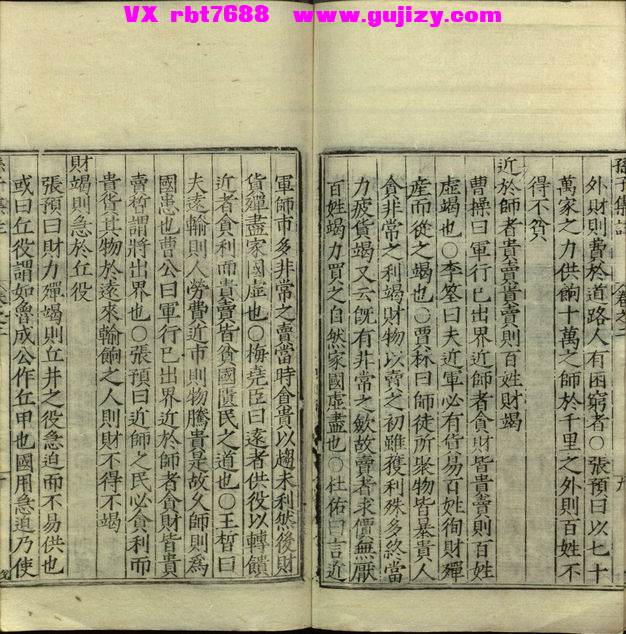 VX rbt7688 www.gujizy.com
孫子集註 卷之二 九
外財則費於道路人有困窮者○張預曰以七十
萬家之力供餉十萬之師於千里之外則百姓不
得不貧
近於師者貴賣貴賣則百姓財竭
曹操曰軍行已出界近師者貪財皆貴賣則百姓
虛竭也○李筌曰夫近軍必有貨易百姓徇財殫
產而從之竭也○賈林曰師徒所聚物皆暴貴人
貪非常之利竭財物以賣之初雖獲利殊多終當
力疲貨竭又云既有非常之斂故賣者求價無厭
百姓竭力買之自然家國虛盡也○杜佑曰言近
軍師市多非常之賣當時貪貴以趨末利然後財
貨殫盡家國虛也○梅堯臣曰遠者供役以轉饋
近者貪利而貴賣皆貧國匱民之道也○王晳曰
夫遠輸則人勞費近市則物騰貴是故久師則為
國患也曹公曰軍行已出界近於師者貪財皆貴
賣晳謂將出界也○張預曰近師之民必貪利而
貴貨其物於遠來輸餉之人則財不得不竭
財竭則急於丘役
張預曰財力殫竭則丘井之役急迫而不易供也
或曰丘役謂如魯成公作丘甲也國用急迫乃使